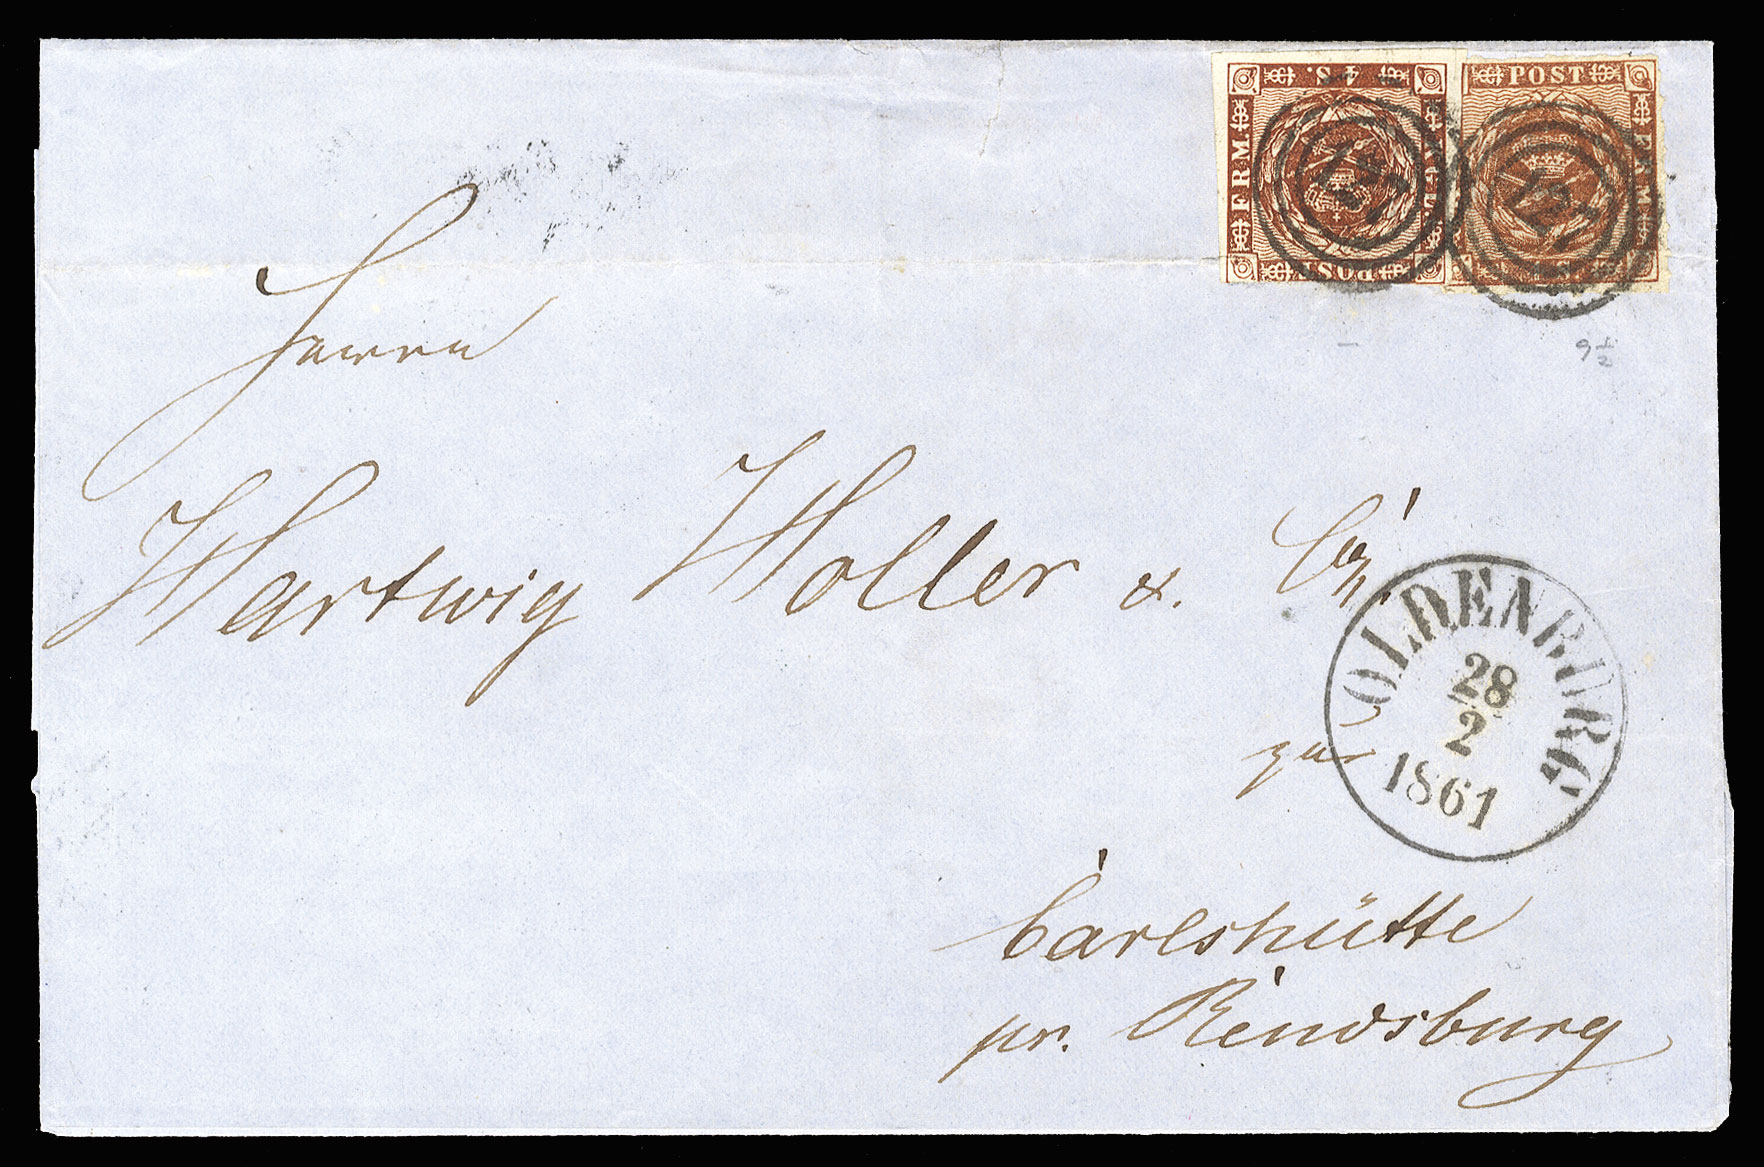 4 S.
FRM.
KGL.
POST
POST
FRM.
127
127
9 1/2
Herrn
Hartwig Holler & Co,
OLDENBURG
28
2
1861
zur
Carlshütte
pr. Rendsburg